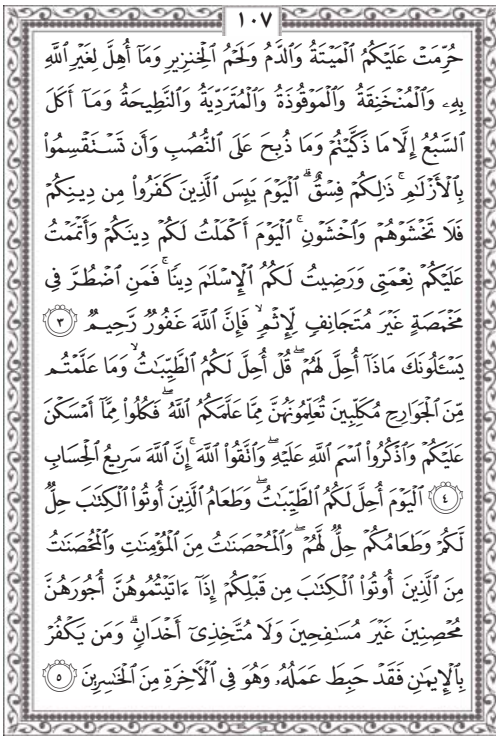 ١٠٧
حُرِّمَتْ عَلَيْكُمُ ٱلْمَيْتَةُ وَٱلدَّمُ وَلَحْمُ ٱلْخِنزِيرِ وَمَآ أُهِلَّ لِغَيْرِ ٱللَّهِ
بِهِۦ وَٱلْمُنْخَنِقَةُ وَٱلْمَوْقُوذَةُ وَٱلْمُتَرَدِّيَةُ وَٱلنَّطِيحَةُ وَمَآ أَكَلَ
ٱلسَّبُعُ إِلَّا مَا ذَكَّيْتُمْ وَمَا ذُبِحَ عَلَى ٱلنُّصُبِ وَأَن تَسْتَقْسِمُوا۟
بِٱلْأَزْلَٰمِ ۚ ذَٰلِكُمْ فِسْقٌ ۗ ٱلْيَوْمَ يَئِسَ ٱلَّذِينَ كَفَرُوا۟ مِن دِينِكُمْ
فَلَا تَخْشَوْهُمْ وَٱخْشَوْنِ ۚ ٱلْيَوْمَ أَكْمَلْتُ لَكُمْ دِينَكُمْ وَأَتْمَمْتُ
عَلَيْكُمْ نِعْمَتِى وَرَضِيتُ لَكُمُ ٱلْإِسْلَٰمَ دِينًا ۚ فَمَنِ ٱضْطُرَّ فِى
مَخْمَصَةٍ غَيْرَ مُتَجَانِفٍ لِّإِثْمٍ ۙ فَإِنَّ ٱللَّهَ غَفُورٌ رَّحِيمٌ ٣
يَسْـَٔلُونَكَ مَاذَآ أُحِلَّ لَهُمْ ۖ قُلْ أُحِلَّ لَكُمُ ٱلطَّيِّبَٰتُ ۙ وَمَا عَلَّمْتُم
مِّنَ ٱلْجَوَارِحِ مُكَلِّبِينَ تُعَلِّمُونَهُنَّ مِمَّا عَلَّمَكُمُ ٱللَّهُ ۖ فَكُلُوا۟ مِمَّآ أَمْسَكْنَ
عَلَيْكُمْ وَٱذْكُرُوا۟ ٱسْمَ ٱللَّهِ عَلَيْهِ ۖ وَٱتَّقُوا۟ ٱللَّهَ ۚ إِنَّ ٱللَّهَ سَرِيعُ ٱلْحِسَابِ
٤ ٱلْيَوْمَ أُحِلَّ لَكُمُ ٱلطَّيِّبَٰتُ ۖ وَطَعَامُ ٱلَّذِينَ أُوتُوا۟ ٱلْكِتَٰبَ حِلٌّ
لَّكُمْ وَطَعَامُكُمْ حِلٌّ لَّهُمْ ۖ وَٱلْمُحْصَنَٰتُ مِنَ ٱلْمُؤْمِنَٰتِ وَٱلْمُحْصَنَٰتُ
مِنَ ٱلَّذِينَ أُوتُوا۟ ٱلْكِتَٰبَ مِن قَبْلِكُمْ إِذَآ ءَاتَيْتُمُوهُنَّ أُجُورَهُنَّ
مُحْصِنِينَ غَيْرَ مُسَٰفِحِينَ وَلَا مُتَّخِذِىٓ أَخْدَانٍ ۗ وَمَن يَكْفُرْ
بِٱلْإِيمَٰنِ فَقَدْ حَبِطَ عَمَلُهُۥ وَهُوَ فِى ٱلْءَاخِرَةِ مِنَ ٱلْخَٰسِرِينَ ٥